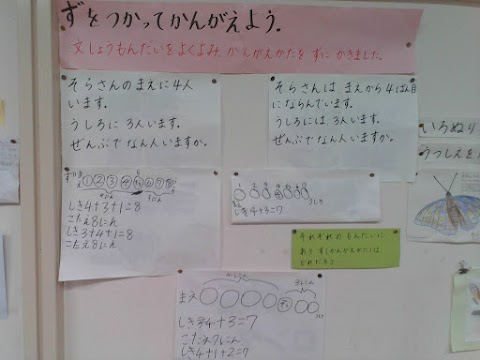 ずをつかってかんがえよう。
文しょうもんだいをよくよみ、かんがえかたを ずに かきました。
そらさんのまえに4人
います。
うしろに 3人います。
ぜんぶでなん人いますか。
そらさんは、まえから4ばん目
にならんでいます。
うしろには、3人います。
ぜんぶでなん人いますか。
①②③④
しき4+3+1=8
こたえ8にん
しき3+4+1=8
こたえ8にん
しき4+3=7
それぞれの もんだいに
あう ず(かんがえかた)は
どれだろう
まえ
しき4+3=7
こたえ7にん
しき4+1+2=7
いろぬり
うつしえを